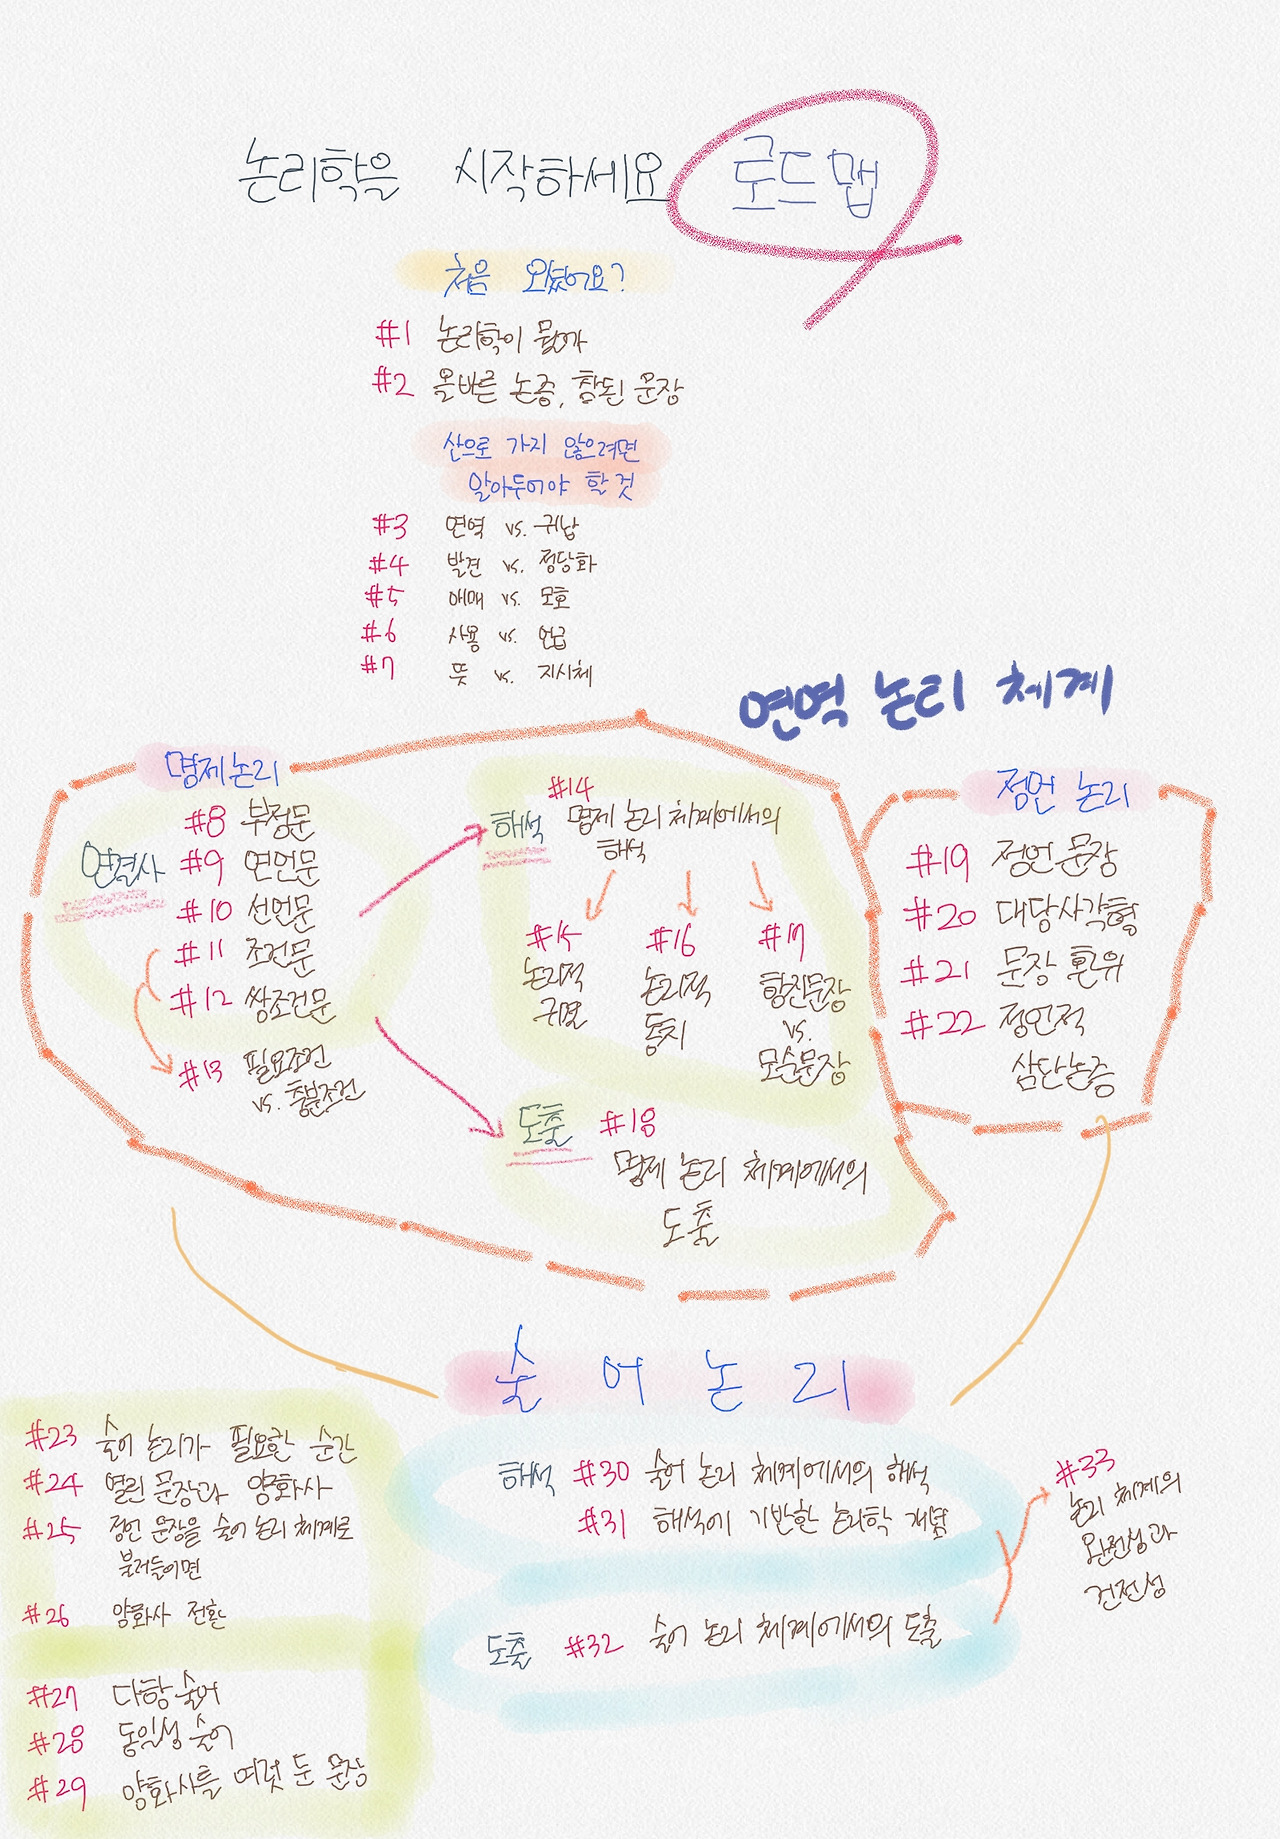 논리학을 시작하세요 로드맵
처음 오셨어요?
#1 논리학이 뭘까
#2 올바른 논증, 참된 문장
산으로 가지 않으려면
알아두어야 할 것
#3 연역 vs. 귀납
#4 발견 vs. 정당화
#5 애매 vs. 모호
#6 사용 vs. 언급
#7 뜻 vs. 지시체
연역 논리 체계
명제논리
연결사
#8 부정문
#9 연언문
#10 선언문
#11 조건문
#12 쌍조건문
#13 필요조건
vs. 충분조건
해석
#14
명제 논리 체계에서의
해석
#15
논리적
귀결
#16
논리적
동치
#17
항진문장
vs.
모순문장
도출 #18
명제 논리 체계에서의
도출
정언 논리
#19 정언문장
#20 대당사각형
#21 문장 환위
#22 정언적
삼단논증
술어논리
#23 술어 논리가 필요한 순간
#24 열린 문장과 양화사
#25 정언 문장을 술어 논리 체계로
불러들이면
#26 양화사 전환
#27 다항술어
#28 동일성 술어
#29 양화사를 여럿 둔 문장
해석 #30 술어 논리 체계에서의 해석
#31 해석에 기반한 논리학 개념
도출 #32 술어 논리 체계에서의 도출
#33
논리 체계의
완전성과
건전성